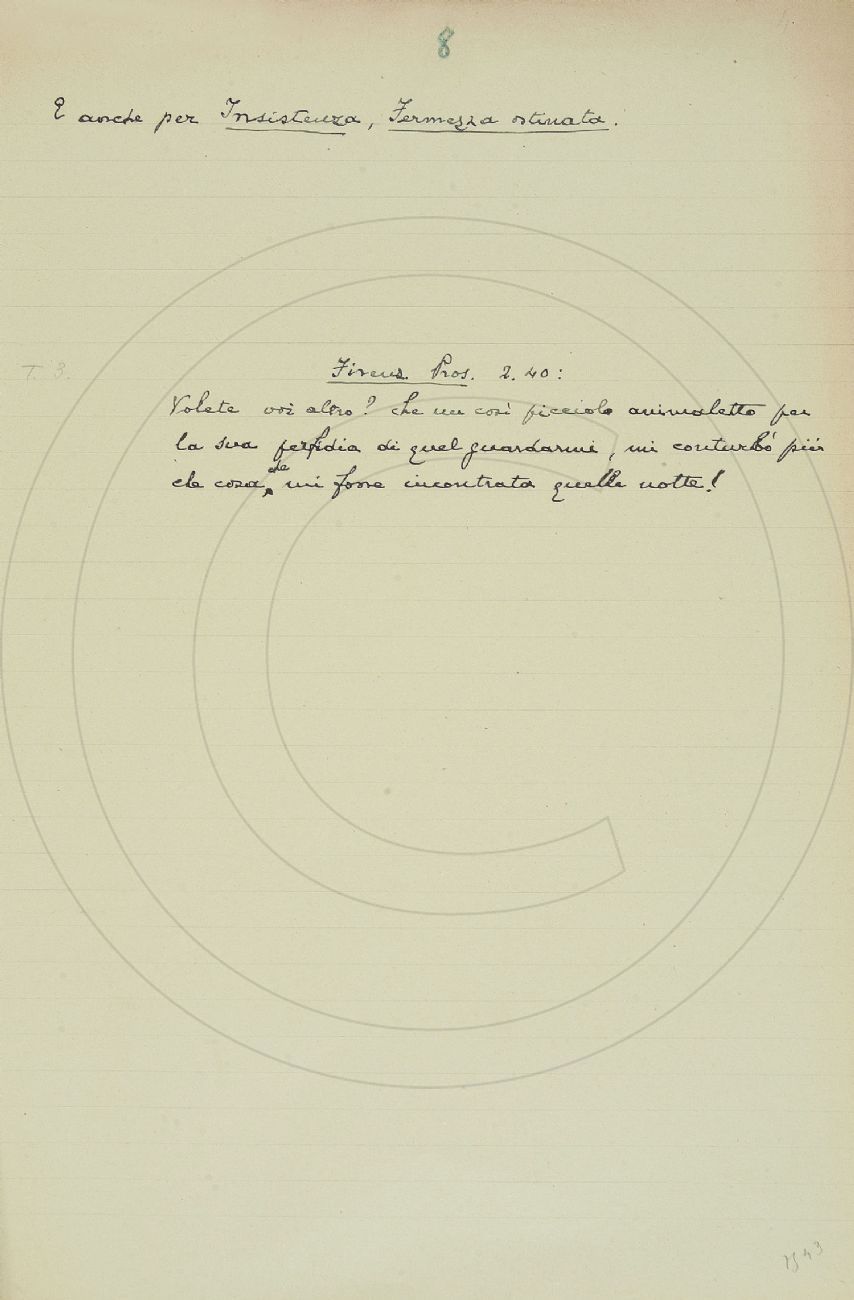 8
E anche per Insistenza, Fermezza ostinata.
T. 3.
Firenz. Pros. 2. 40:
Volete voi altro? che un così picciolo animaletto per
la sua perfidia di quel guardarmi, mi conturbò più
che cosa, che mi fosse incontrata quella notte!
1543